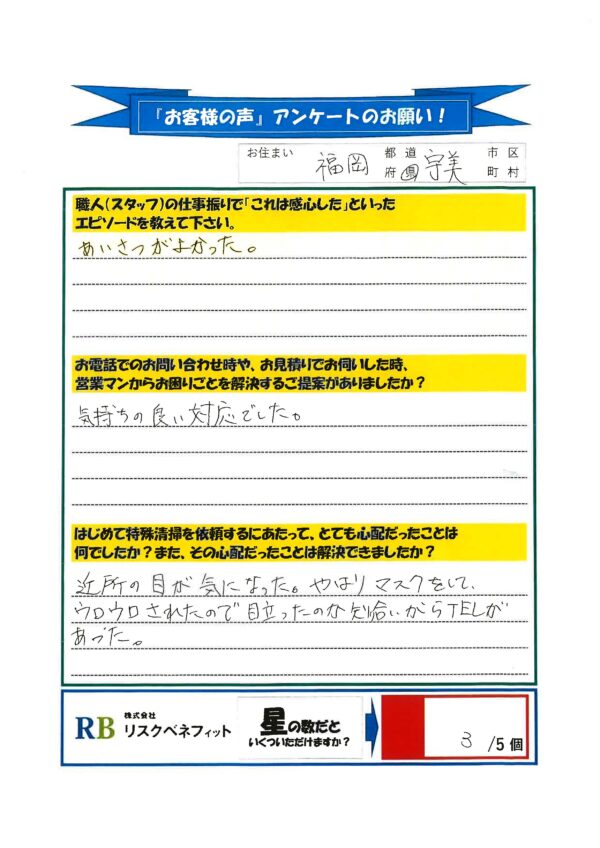 『お客様の声』アンケートのお願い！
お住まい 福岡 都道府県 宇美 市区町村
職人（スタッフ）の仕事振りで「これは感心した」といった
エピソードを教えて下さい。
あいさつがよかった。
お電話でのお問い合わせ時や、お見積りでお伺いした時、
営業マンからお困りごとを解決するご提案がありましたか？
気持ちの良い対応でした。
はじめて特殊清掃を依頼するにあたって、とても心配だったことは
何でしたか？また、その心配だったことは解決できましたか？
近所の目が気になった。やはりマスクをして、
ウロウロされたので目立ったのか知合いからTELが
あづた。
RB 株式会社 リスクベネフィット
星の数だと
いくついただけますか？
3 /5個